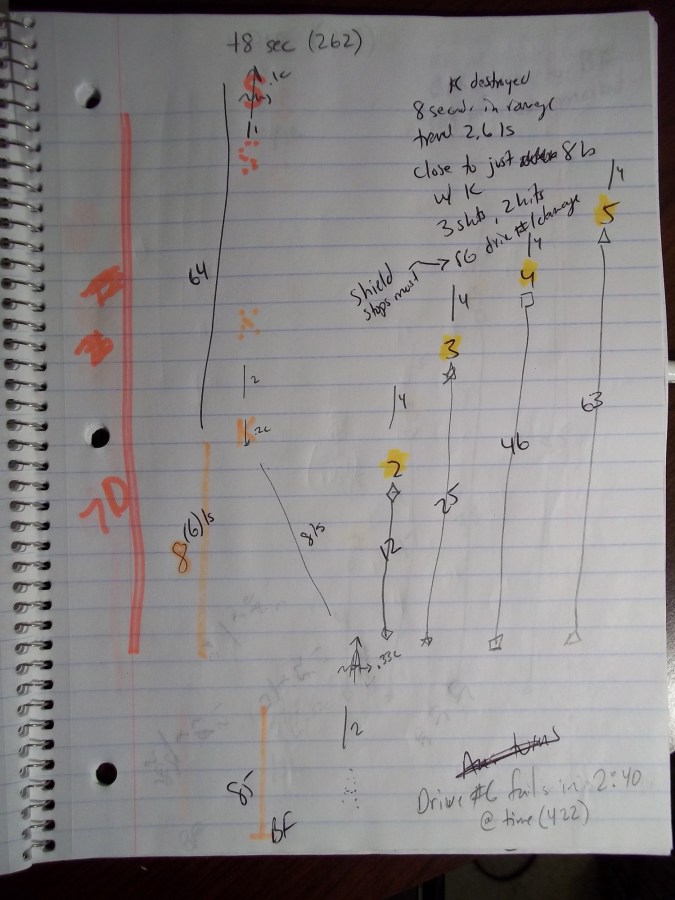 +8 sec (262)
.1c
K destroyed
8 seconds in range
travel 2.6 ls
close to just 8 ls
w/ K
3 shots, 2 hits
Shield
stops most
drive #1 damage
64
/2
K .2c
8 (6) ls
8 ls
70
/4
5
/4
4
/4
3
/4
2
12
25
46
63
A .33c
/2
85
BF
Drive #6 fails in 2:40
@ time (422)